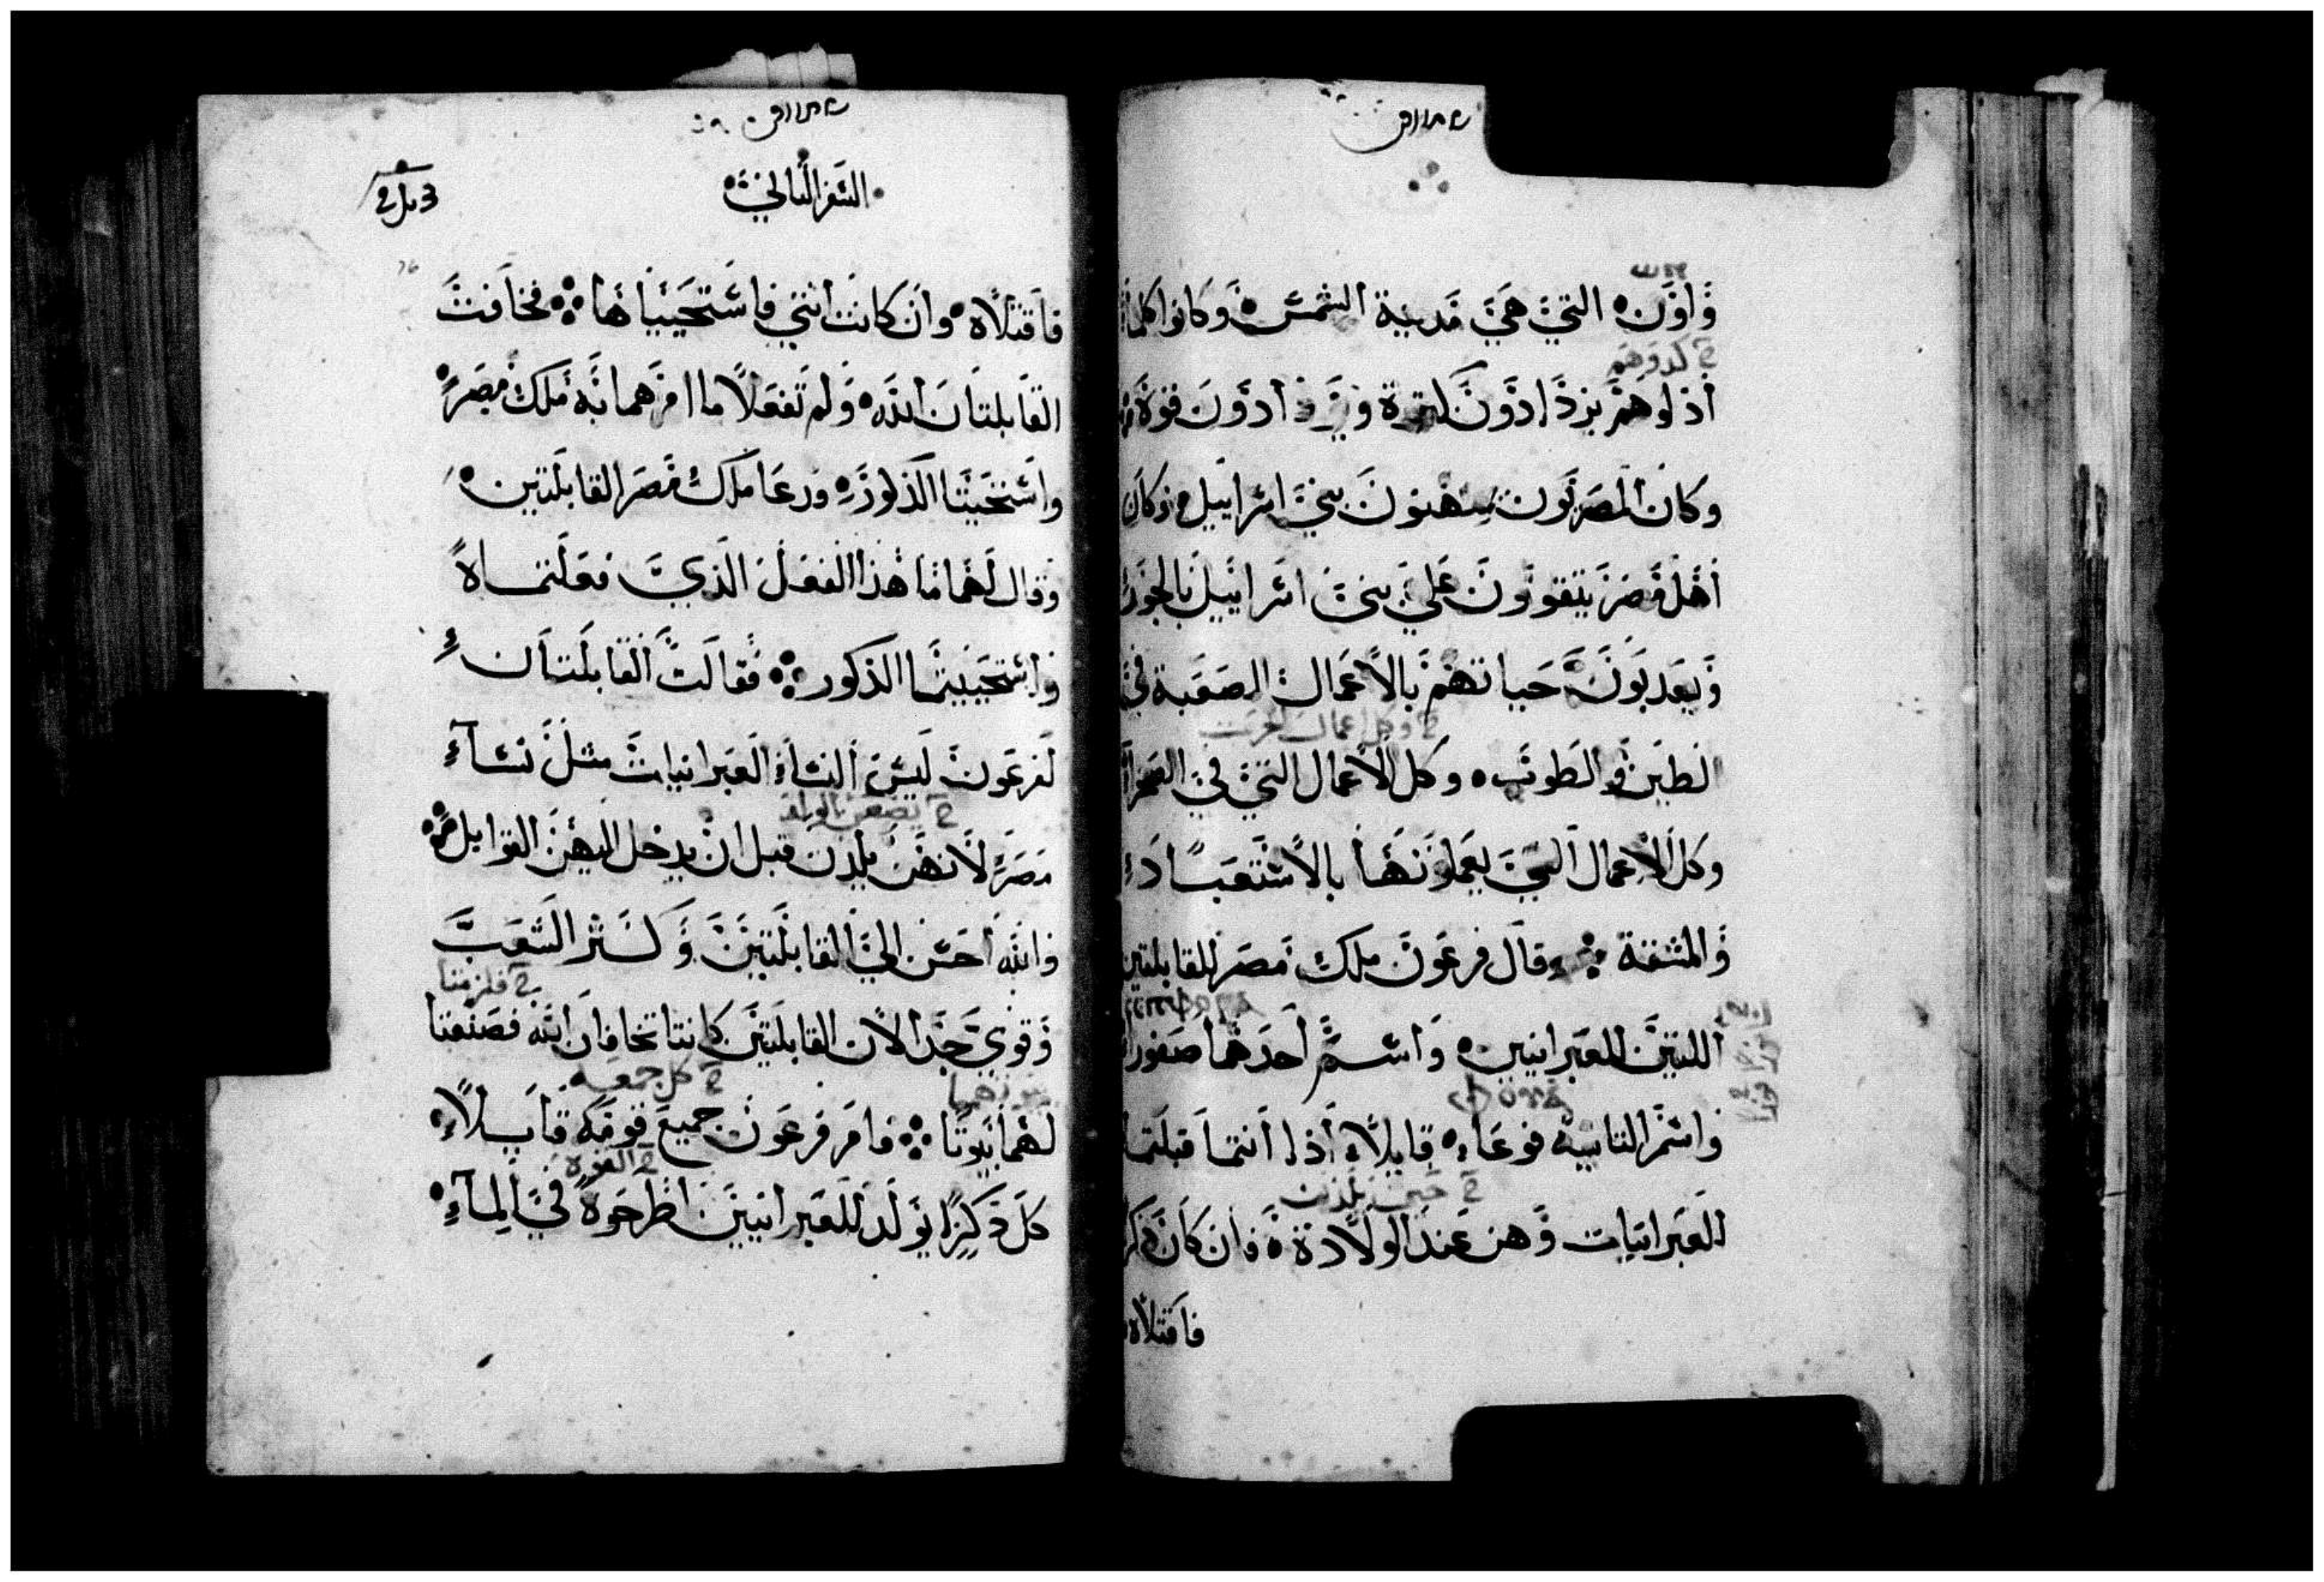 وَاوَن التيَ هيَ مَدينة الشمس وَكانوا كلما
خ كدوهم
أذلوهم يزدادون كثرة ويزدادون قوة
وكان المصريون يمتهنون بني اسراييل وكان
أهل مصر يتقوون علي بني اسراييل بالجور
وَيعدبون حياتهم بالاعمال الصعبة في
خ وكل اعمال الحرث
الطين والطوب وكل الاعمال التي في الصحرا
وكل الاعمال التي يعملونها بالاستعباد
والمشقة وقال فرعون ملك مصر للقابلتين
اللتين للعبرانيين واسم أحدهما صفورا
واسم الثانية فوعا قايلا أذا أنتما قبلتما
خ حين يلدن
العبرانيات وهن عند الولادة فان كان ذكر
فاقتلاه
السفر الثاني
فاقتلاه وان كانت انثي فاستحيياها فخافت
القابلتان الله ولم تفعلا ما امرهما به ملك مصر
واستحيتا الذكور ودعا ملك مصر القابلتين
وقال لهما ما هذا الفعل الذي فعلتماه
واستحييتما الذكور فقالت القابلتان
لفرعون ليس النساء العبرانيات مثل نساء
خ يضعن بالولد
مصر لانهن يلدن قبل ان يدخل اليهن القوابل
والله أحسن الي القابلتين وكثر الشعب
خ فلزمتا
وقوي جدا لان القابلتين كانتا تخافان الله فصنعتا
خ كل جمعه
لهما بيوتا فامر فرعون جميع قومه قايلا
كل ذكر يولد للعبرانيين اطرحوه في الماء